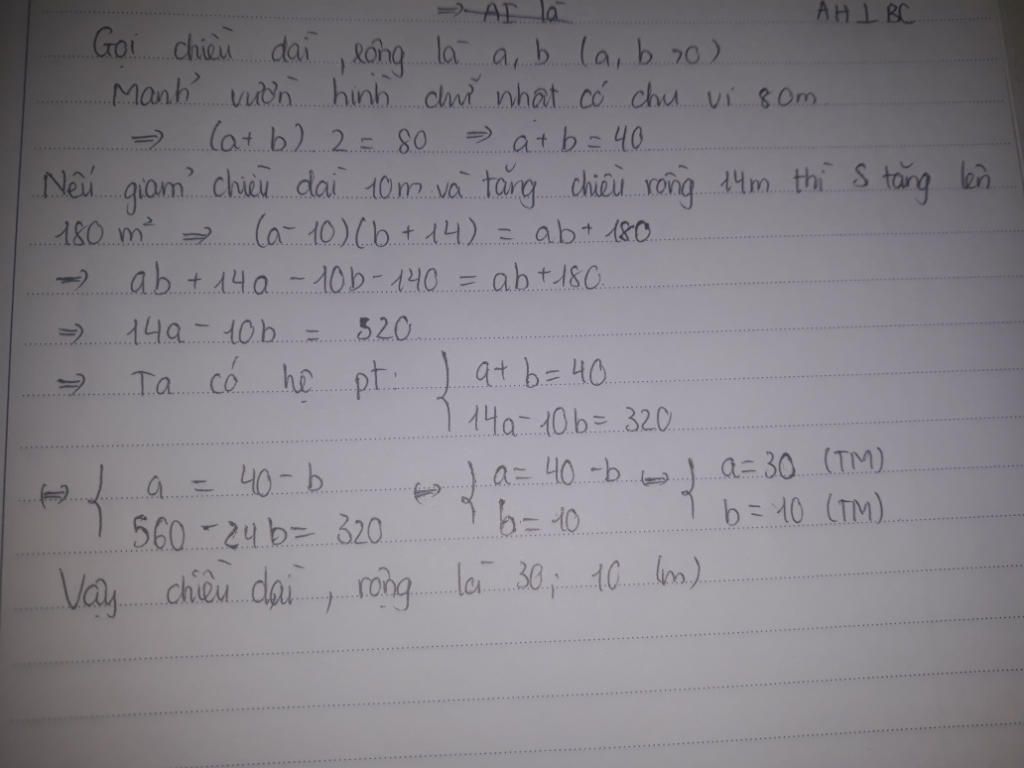 ⇒ AI là
AH ⊥ BC
Gọi chiều dài, rộng là a, b (a, b >0)
Mảnh vườn hình chữ nhật có chu vi 80m
⇒ (a+ b) 2 = 80 ⇒ a+ b = 40
Nếu giảm chiều dài 10m và tăng chiều rộng 14m thì S tăng lên
180 m² ⇒ (a-10)(b+14) = ab+180
⇒ ab + 14a - 10b - 140 = ab+180
⇒ 14a - 10b = 320
⇒ Ta có hệ pt: { a+ b = 40
14a-10b= 320
⇔ { a = 40-b ⇔ { a= 40 -b ⇔ { a=30 (TM)
560 - 24b= 320 b= 10 b= 10 (TM)
Vậy chiều dài, rộng là 30; 10 (m)